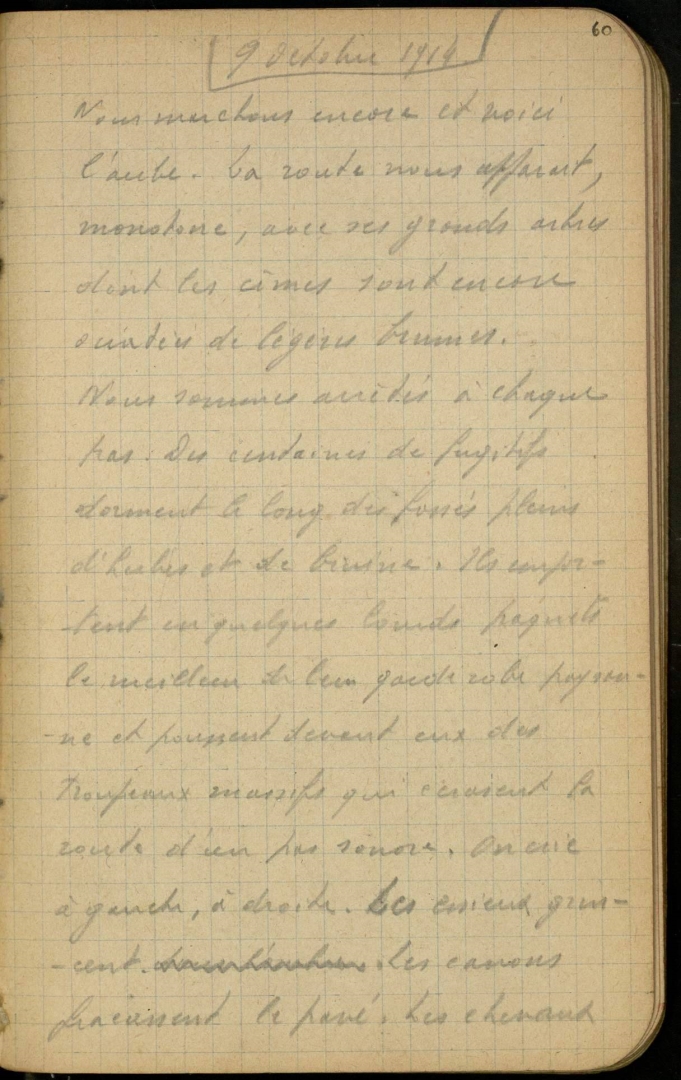 60
9 Octobre 1914
Nous marchons encore et voici
l'aube. La route nous apparait,
monotone, avec ses grands arbres
dont les cîmes sont encore
de légères brumes.
Nous sommes arrêtés à chaque
pas. Des centaines de fugitifs
dorment le long des fossés pleins
d'herbes et de bruine. Ils empor-
-tent en quelques lourds paquets
le meilleur de leur garde robe paysan-
-ne et poussent devant eux des
troupeaux massifs qui écrasent la
route d'un pas sonore. On crie
à gauche, à droite. Les essieux grin-
-cent. Les canons
fracassent le pavé. Les chevaux